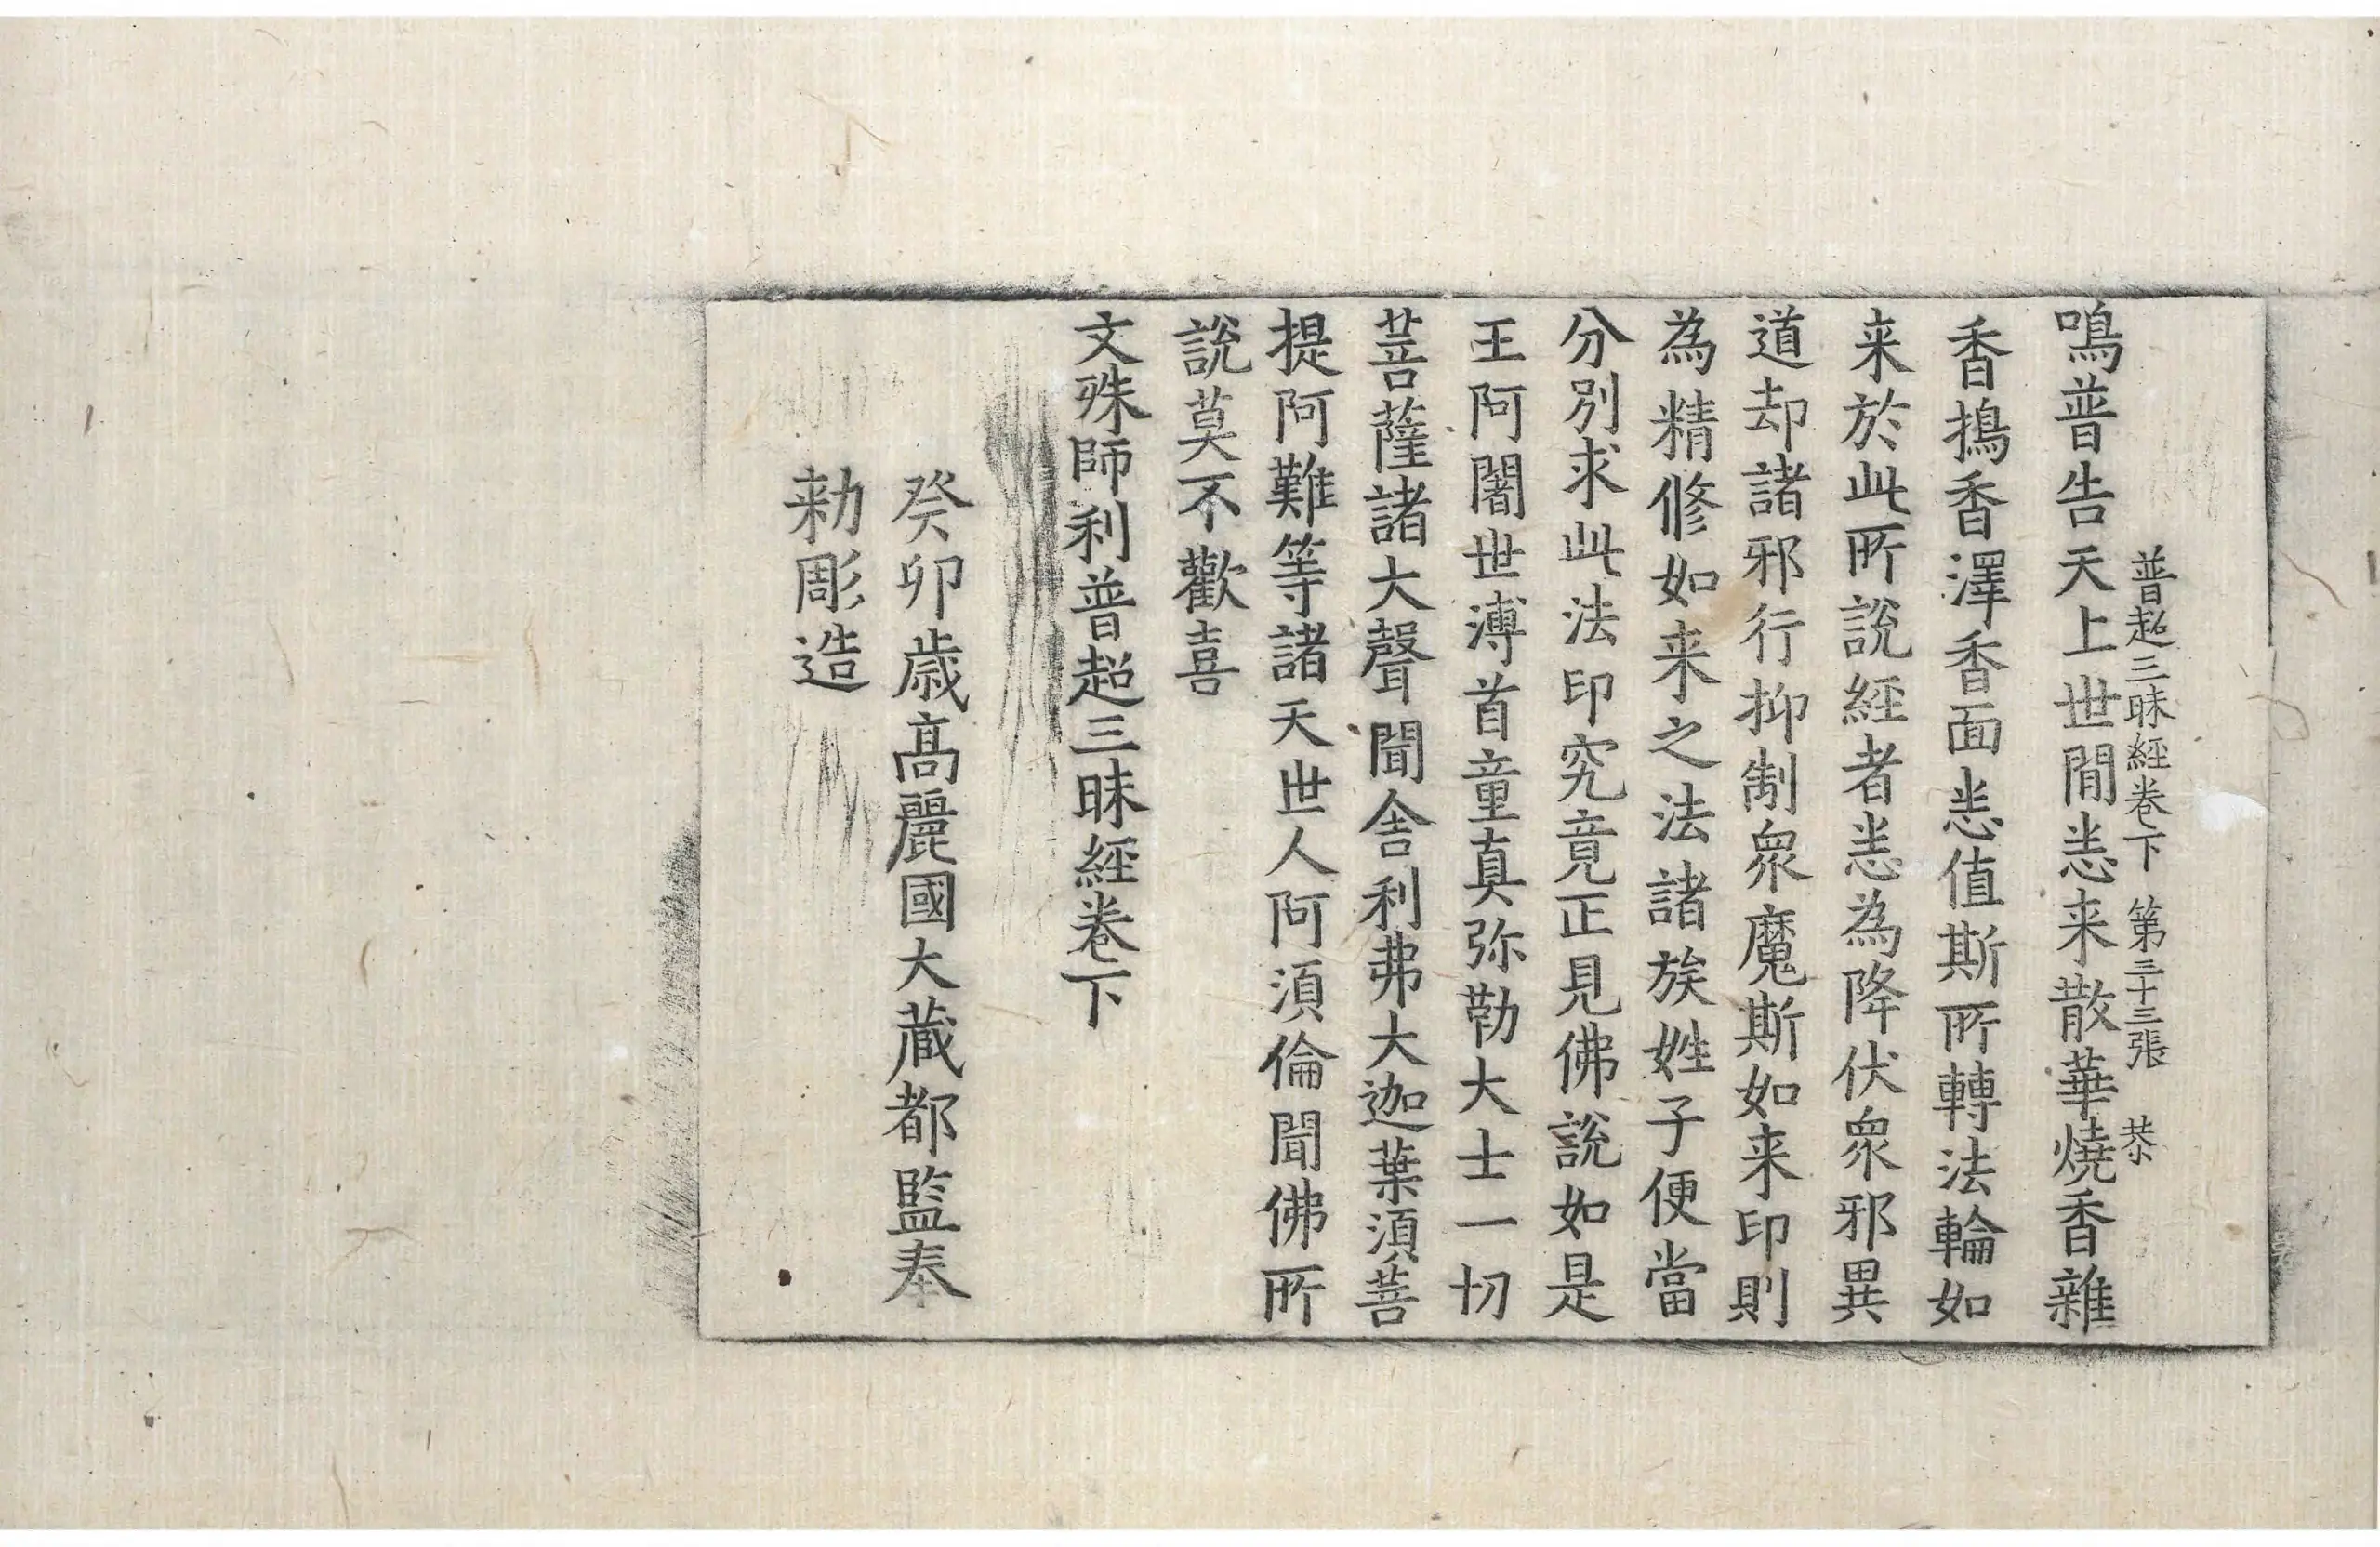 普超三昧經卷下 第三十三張 恭
鳴普告天上世間悉来散華燒香雜
香擣香澤香面悉值斯所轉法輪如
来於此所說經者悉為降伏衆邪異
道却諸邪行抑制衆魔斯如来印則
為精修如来之法諸族姓子便當
分別求此法印究竟正見佛說如是
王阿闍世溥首童真弥勒大士一切
菩薩諸大聲聞舍利弗大迦葉須菩
提阿難等諸天世人阿須倫聞佛所
說莫不歡喜
文殊師利普超三昧經卷下
癸卯歳髙麗國大藏都監奉
勑彫造